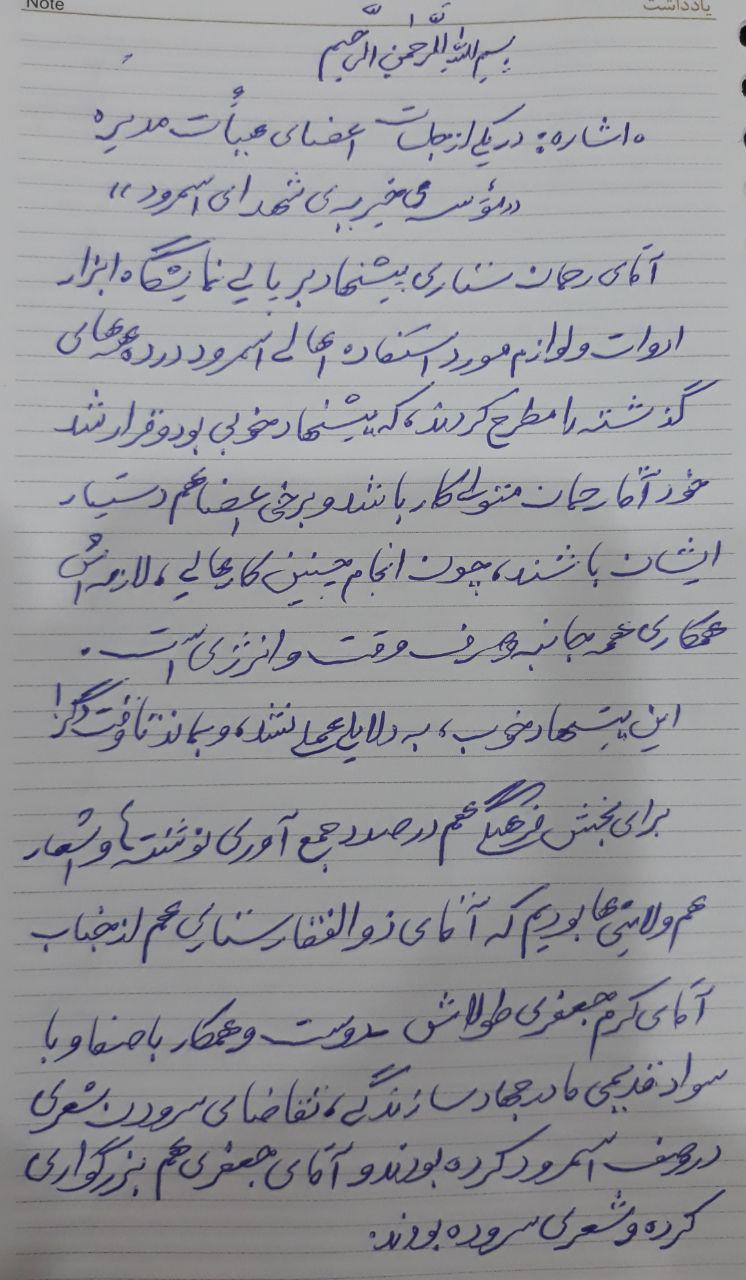 Note یادداشت
بسم الله الرحمن الرحیم
ه اشاره: در یکی از جلسات اعضای هیأت مدیره
«مؤسسه‌ی خیریه‌ی شهدای اسمرود»
آقای رحمان ستاری پیشنهاد برپایی نمایشگاه ابزار
ادوات و لوازم مورد استفاده اهالی اسمرود در دهه‌های
گذشته را مطرح کردند، که پیشنهاد خوبی بود و قرار شد
خود آقا رحمان متولی کار باشد و برخی اعضا هم دستیار
ایشان باشند، چون انجام چنین کار عالی، لازمه‌اش
همکاری همه جانبه و صرف وقت و انرژی است.
این پیشنهاد خوب، به دلایلی عملی نشد، و بماند تا وقت دگر!
برای بخش فرهنگی هم درصدد جمع آوری نوشته‌ها و اشعار
هم ولایتی‌ها بودیم که آقای ذوالفقار ستایی هم از جناب
آقای کرم جعفری طولاش دوست و همکار باصفا و با
سواد قدیمی ما در جهاد سازندگی، تقاضای سرودن شعری
در وصف اسمرود کرده بودند و آقای جعفری هم بزرگواری
کرده و شعری سروده بودند.